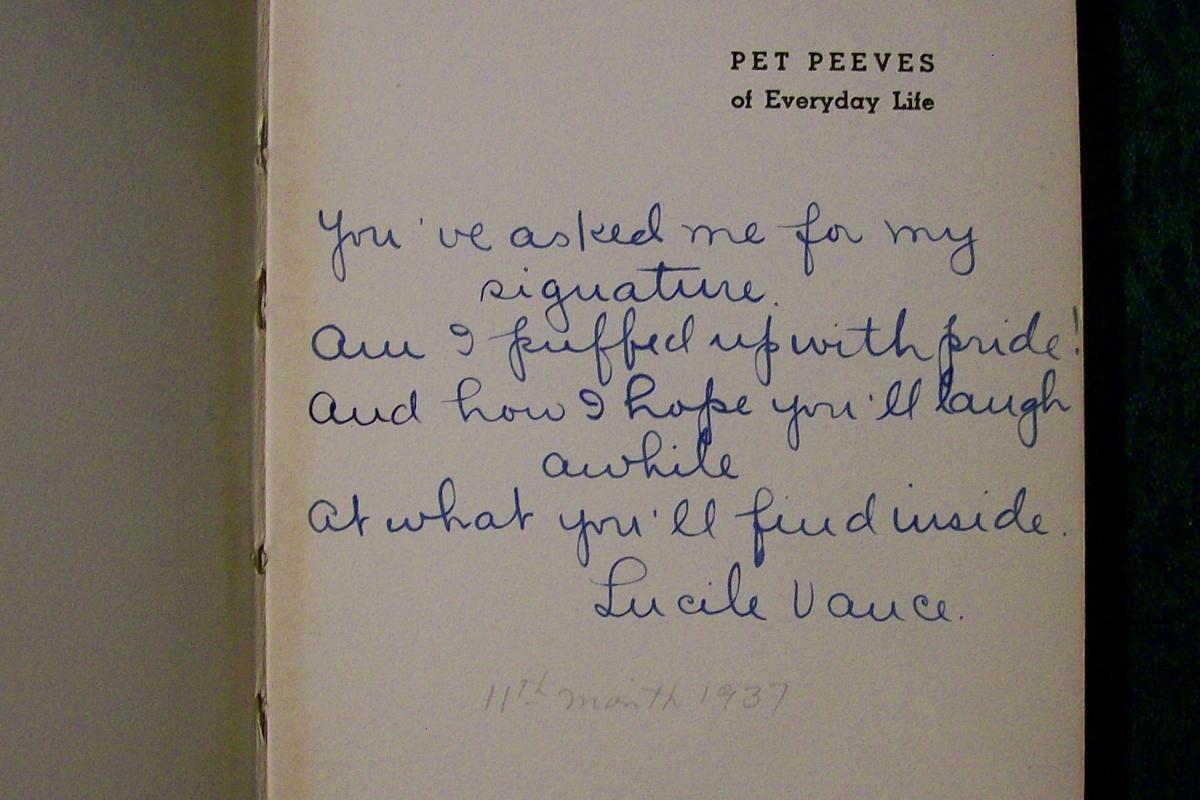 PET PEEVES
of Everyday Life
You've asked me for my
signature.
Am I puffed up with pride!
And how I hope you'll laugh
awhile
At what you'll find inside.
Lucile Vance.
11th month 1937